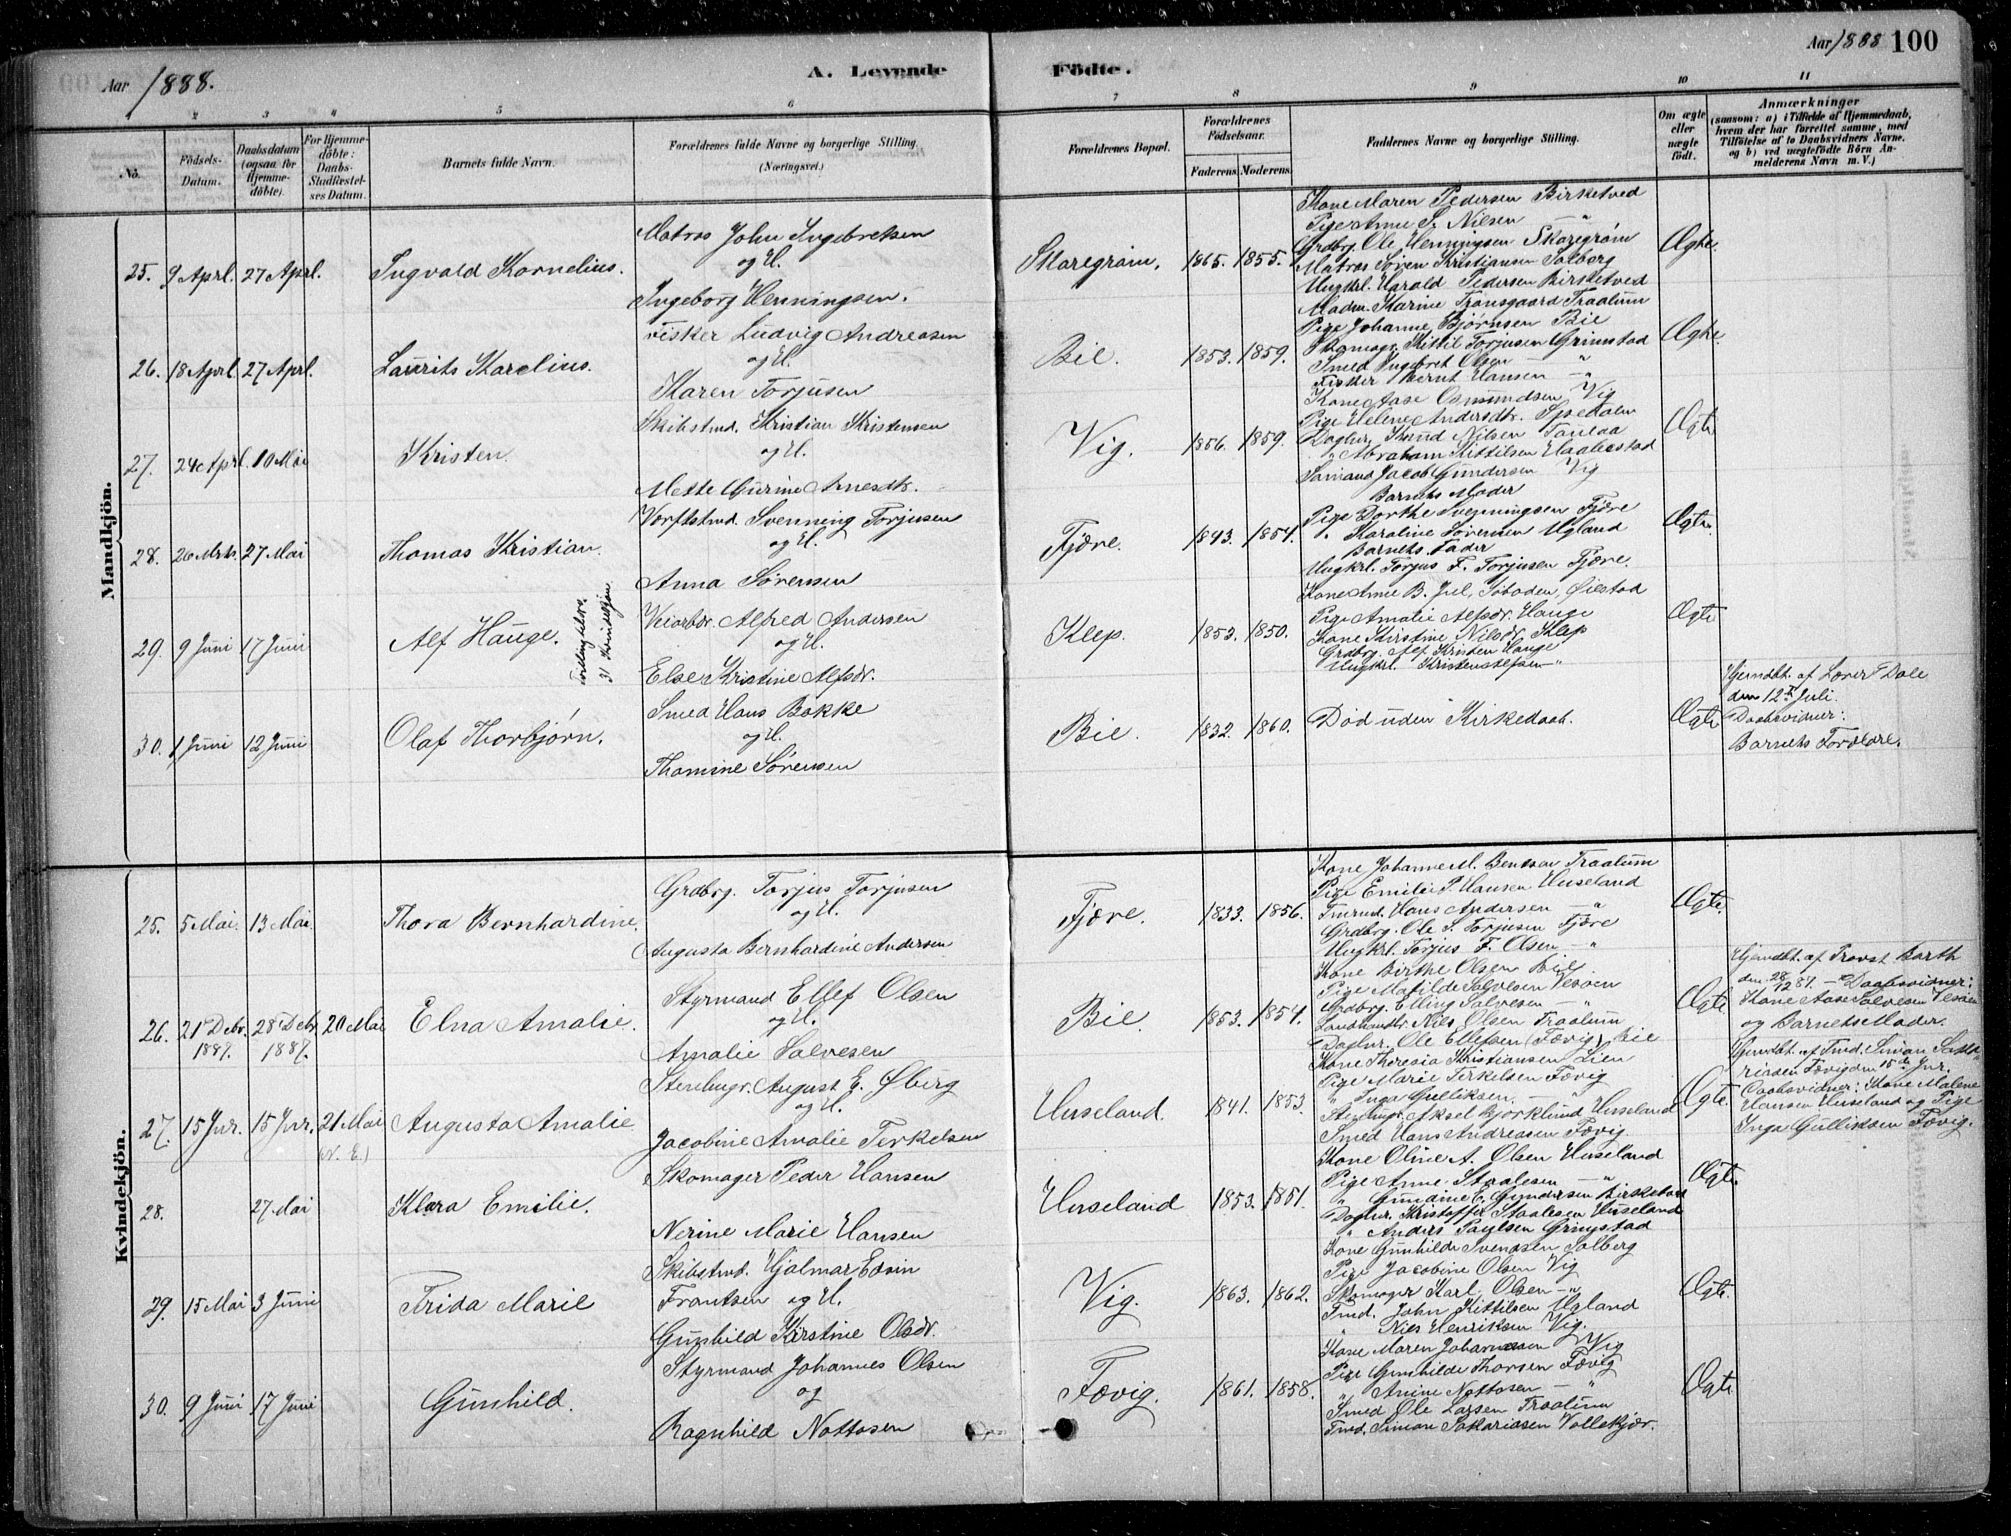 Aar 1888.
A. Levende Födte.
Aar 1888 100
2 3 4 5 6 7 8 9 10 11
No.
Födsels-Datum.
Daabsdatum (ogsaa for Hjemmedöbte).
For Hjemmedöbte: Daabs-Stadfestelses Datum.
Barnets fulde Navn.
Forældrenes fulde Navne og borgerlige Stilling. (Næringsvei.)
Forældrenes Bopæl.
Forældrenes Födselsaar.
Faderens. Moderens.
Faddernes Navne og borgerlige Stilling.
Om ægte eller uægte födt.
Anmærkninger
(saasom: a) i Tilfælde af Hjemmedaab, hvem der har forrettet samme, med Tilföielse af to Daabsvidners Navne. og b) ved uægtefödte Börn Anmelderens Navn m. V.)
Mandkjön.
25. 9 Aprl. 27 Aprl. Ingvald Kornelius.
Matros John Ingebretsen
og H.
Ingeborg Henningsen.
Skaregrøm. 1865. 1855.
Kone Maren Pedersen Birketved
Pige Anne S. Nilsen — "
Grdbrg. Ole Henningsen Skaregrøm
Matros Søren Kristiansen Solberg
Ungkrl. Harald Pedersen Birketved
Ægte.
26. 18 Aprl. 27 Aprl. Laurits Karelius.
Fisker Ludvig Andreasen
og H.
Karen Torjusen
Bie. 1853. 1859.
Madm. Karine Transgaard Traalum
Pige Johanne Bjørnsen Bie
Skomagr. Kittil Torjusen Grimstad
Smed Ingebret Olsen — "
Fisker Bernt Hansen — "
Ægte
27. 24 Aprl. 10 Mai Kristen.
Skibstmd. Kristian Kristensen
og H.
Mette Gurine Arnesdtr.
Vig. 1856. 1859.
Kone Aase Osmundsen Vig
Pige Helene Andersdtr. Spedalen
Dagltr. Knud Nilsen
" Abraham Kittilsen Haabestad
Sømand Jacob Gundersen Vig
Ægte
28. 26 Mrts. 27 Mai Thomas Kristian.
Verftstmd. Svenning Torjusen
og H.
Anna Sørensen
Fjære. 1843. 1854.
Barnets Moder
Pige Dorthe Svenningsen Fjære
" Karoline Sørensen Ugland
Barnets Fader
Ungkrl. Torjus F. Torjusen Fjære.
Ægte.
29. 9 Juni 17 Juni Alf Hauge.
Tvilling til
31 Kvindekjøn
Veiarbdr. Alfred Andersen
og H.
Else Kristine Alfsdr.
Klep. 1853. 1850.
Kone Anne B. Juel, Øiestad
Pige Amalie Alfsdr. Hauge
Kone Kirstine Nilsdr. Klep
Grdbrg. Alf Kristen Hauge
Ungkrl. Kristen Alfsen — "
Ægte
30. 1 Juni 12 Juni Olaf Thorbjørn.
Smed Hans Bakke
og H.
Thomine Sørensen
Bie. 1832. 1860. Død uden Kirkedaab. Ægte
Hjemdbt. af Lærer Dale
den 12te Juli.
Daabsvidner:
Barnets Forældre.
Kvindekjön.
25. 5 Mai. 13 Mai. Thora Bernhardine.
Grdbrg. Torjus Torjusen
og H.
Augusta Bernhardine Andersen
Fjære. 1833. 1856.
Kone Johanne M. Bentsen Traalum
Pige Emilie P. Hansen Huseland
Tmrmd. Hans Andersen — "
Grdbrg. Ole S. Torjusen Fjære
Ungkrl. Torjus F. Olsen — "
Ægte.
26. 21 Debr. 1887. 28 Debr. 1887. 20 Mai Elna Amalie.
Styrmand Ellef Olsen
og H.
Amalie Salvesen
Bie. 1853. 1854.
Kone Birthe Olsen Bie.
Pige Matilde Salvesen Vesøen
Grdbrg. Elling Salvesen — "
Landhandlr. Nils Olsen Traalum
Dagltr. Ole Ellefsen (Fævig) Bie
Ægte
Hjemdbt. af Provst Barth
den 28/12 87. — Daabsvidner:
Kone Aase Salvesen Vesøen
og Barnets Moder.
27. 15 Jnr. 15 Jnr. 21 Mai Augusta Amalie
Stenhugr. August E. Øberg
og H.
Jacobine Amalie Terkelsen
Huseland. 1841. 1853.
Kone Theresia Kristiansen Lien
Pige Marie Terkelsen Fævig
" Inga Gulliksen. — "
Stenhugr. Aksel Bjørklund Huseland
Smed Hans Andreasen Fævig
Ægte.
Hjemdbt. af Tmd. Simon Sakka-
riasen Fævig den 15de Jnr.
Daabsvidner: Kone Malene
Hansen Huseland og Pige
Inga Gulliksen Fævig.
28. 27 Mai Klara Emilie.
Skomager Peder Hansen
Nerine Marie Hansen
Huseland 1853. 1851.
Kone Oline A. Olsen Huseland
Pige Anne Staalesen — "
" Gundine C. Gundersen Birketved
Dagltr. Kristoffer Staalesen Huseland
" Anders Paulsen Grimstad
Ægte.
29. 15 Mai 3 Juni Frida Marie
Skibstmd. Hjalmar Edvin
Frantsen og H.
Gunhild Kirstine Olsdr.
Vig. 1863. 1862.
Kone Gunhilde Svendsen Solberg
Pige Jacobine Olsen Vig
Skomager Karl Olsen — "
Tmd. John Kittilsen Ugland
" Niels Henriksen Vig.
Ægte.
30. 9 Juni 17 Juni Gunhild.
Styrmand Johannes Olsen
og
Ragnhild Nottosen
Fævig. 1861. 1858.
Kone Maren Johannesen Vig
Pige Gunhilde Thorsen Fævig
" Anine Nottosen — "
Smed Ole Larsen Traalum
Tmd. Simon Sakkariasen Vollekjær.
Ægte.